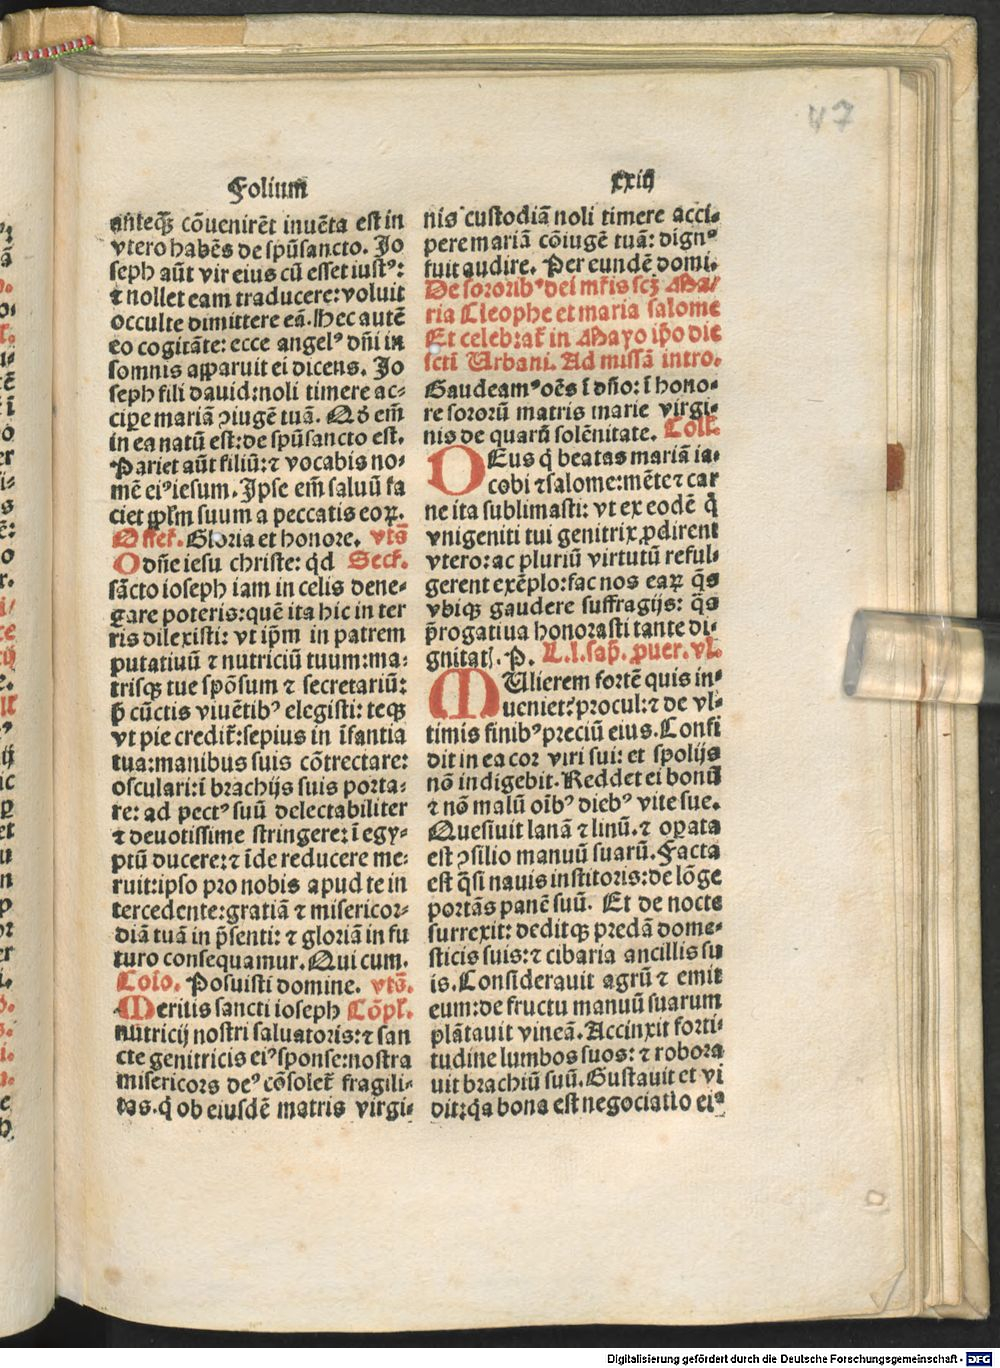 47
Folium
anteq̃ȝ cōuenirēt inuēta est in
vtero habēs de spū sancto. Jo
seph aūt vir eius cū esset iustꝰ:
⁊ nollet eam traducere: voluit
occulte dimittere eā. Hec autē
eo cogitāte: ecce angelꝰ dñi in
somnis apparuit ei dicens. Jo
seph fili dauid: noli timere ac-
cipe mariā ꝯiugē tuā. Qđ em̄
in ea natū est: de spū sancto est.
Pariet aūt filiū: ⁊ vocabis no-
mē eiꝰ iesum. Ipse em̄ saluū fa
ciet ppl̄m suum a peccatis eoꝝ.
Offert̄. Gloria et honore. vts̄
O dñe iesu christe: qđ Secr̄.
sācto ioseph iam in celis dene-
gare poteris: quē ita hic in ter
ris dilexisti: vt ip̄m in patrem
putatiuū ⁊ nutriciū tuum: ma-
trisqȝ tue spōsum ⁊ secretariū:
p̄ cūctis viuētibꝰ elegisti: teqȝ
vt pie credit̄: sepius in īfantia
tua: manibus suis cōtrectare:
osculari: ī brachijs suis porta-
re: ad pectꝰ suū delectabiliter
⁊ deuotissime stringere: ī egy-
ptū ducere: ⁊ īde reducere me-
ruit: ipso pro nobis apud te in
tercedente: gratiā ⁊ misericor-
diā tuā in p̄senti: ⁊ gloriā in fu
turo consequamur. Qui cum.
Cōio. Posuisti domine. vts̄.
Meritis sancti ioseph Cōpl̄.
nutricij nostri saluatoris: ⁊ san
cte genitricis eiꝰ sponse: nostra
misericors deꝰ cōsolet̄ fragili-
tas. q̄ ob eiusdē matris virgi-
xxiij
nis custodiā noli timere acci-
pere mariā cōiugē tuā: dignꝰ
fuit audire. Per eundē domi.
De sororibꝰ dei mr̄is scȝ Ma/
ria Cleophe et maria salome
Et celebrat̄ in Mayo ip̄o die
scti Urbani. Ad missā intro.
Gaudeamꝰ oēs ī dño: ī hono-
re sororū matris marie virgi-
nis de quarū solēnitate. Coll̄.
DEus q̄ beatas mariā ia-
cobi ⁊ salome: mēte ⁊ car
ne ita sublimasti: vt ex eodē q̄
vnigeniti tui genitrix ꝓdirent
vtero: ac pluriū virtutū reful-
gerent exēplo: fac nos eaꝝ q̄s
vbiqȝ gaudere suffragijs: q̄s
p̄rogatiua honorasti tante di-
gnitat̄. P. L. l. sap̄. ꝓuer. vl̄.
MUlierem fortē quis in-
ueniet? procul: ⁊ de vl-
timis finibꝰ preciū eius. Confi
dit in ea cor viri sui: et spolijs
nō indigebit. Reddet ei bonū
⁊ nō malū oībꝰ diebꝰ vite sue.
Quesiuit lanā ⁊ linū. ⁊ oꝑata
est ꝯsilio manuū suarū. Facta
est q̄si nauis institoris: de lōge
portās panē suū. Et de nocte
surrexit: deditqȝ predā dome-
sticis suis: ⁊ cibaria ancillis su
is. Considerauit agrū ⁊ emit
eum: de fructu manuū suarum
plātauit vineā. Accinxit forti-
tudine lumbos suos: ⁊ robora
uit brachiū suū. Gustauit et vi
dit: q̄a bona est negociatio eiꝰ
Digitalisierung gefördert durch die Deutsche Forschungsgemeinschaft - DFG